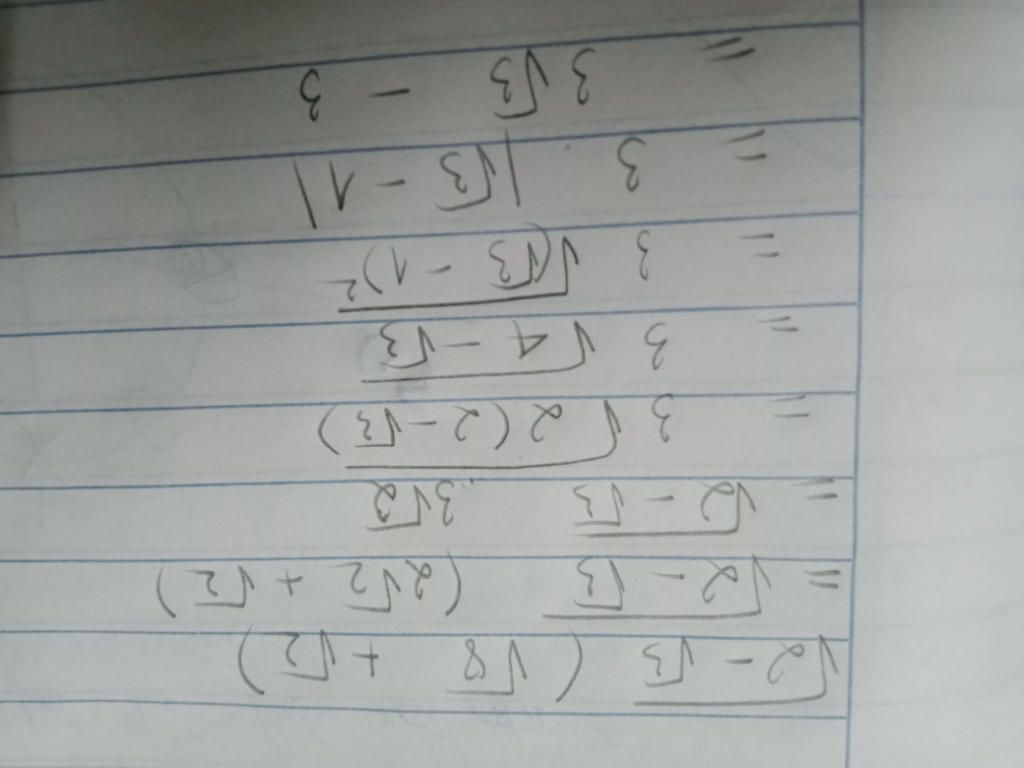 √(2 - √3) (√8 + √2)
= √(2 - √3) (2√2 + √2)
= √(2 - √3) . 3√2
= 3 √(2(2 - √3))
= 3 √(4 - √3)
= 3 √((√3 - 1)²)
= 3 . |√3 - 1|
= 3√3 - 3